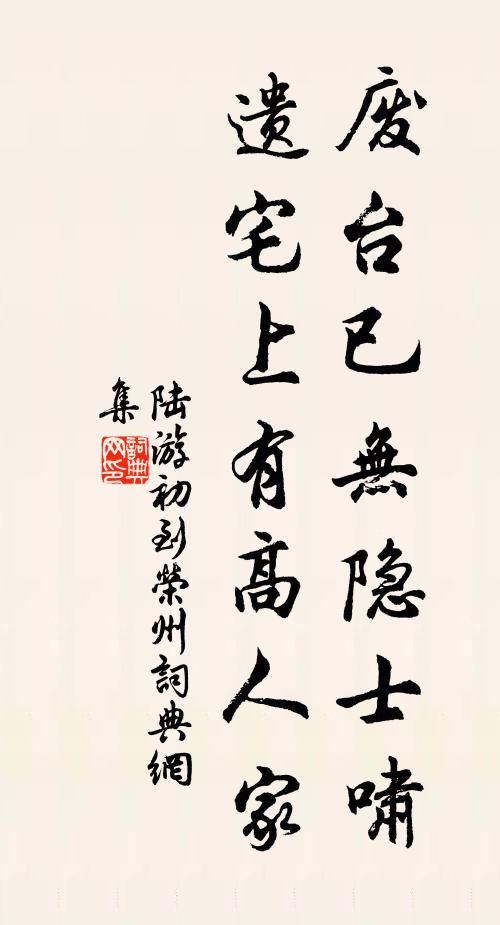 废台已無隐士啸
遗宅上有高人家
陆游初到榮州詞典網
集
詞典网印